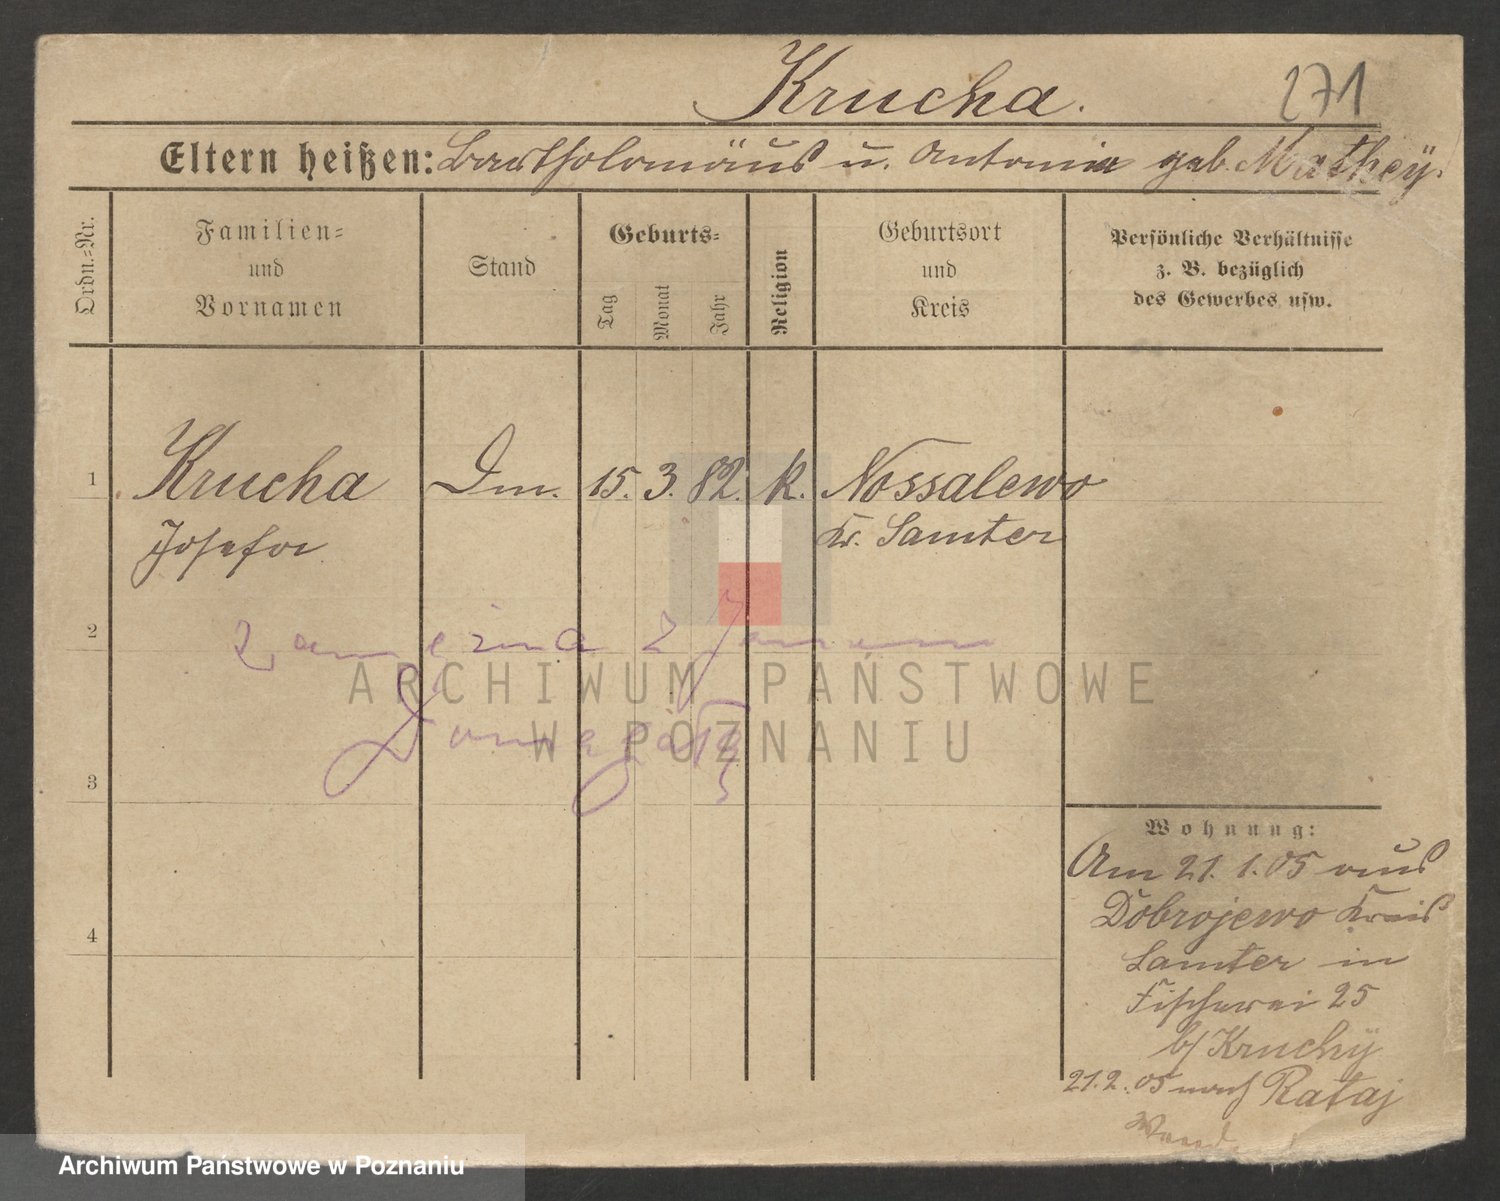 Krucha.
271
Eltern heißen: Bartholomäus u. Antonia geb. Mathey.
Ordn.-Nr.
Familien-
und
Vornamen
Stand
Geburts-
Tag
Monat
Jahr
Religion
Geburtsort
und
Kreis
Persönliche Verhältnisse
z. B. bezüglich
des Gewerbes usw.
1
Krucha
Josefa
15. 3. 82. k. Nossalewo
Kr. Samter
2
zamężna z Janem
3
4
ARCHIWUM PAŃSTWOWE
W POZNANIU
Wohnung:
Am 21. 1. 05 aus
Dobrojewo Kreis
Samter in
Fischerei 25
b/ Kruchÿ
21.2.05 nach Rataj
Archiwum Państwowe w Poznaniu